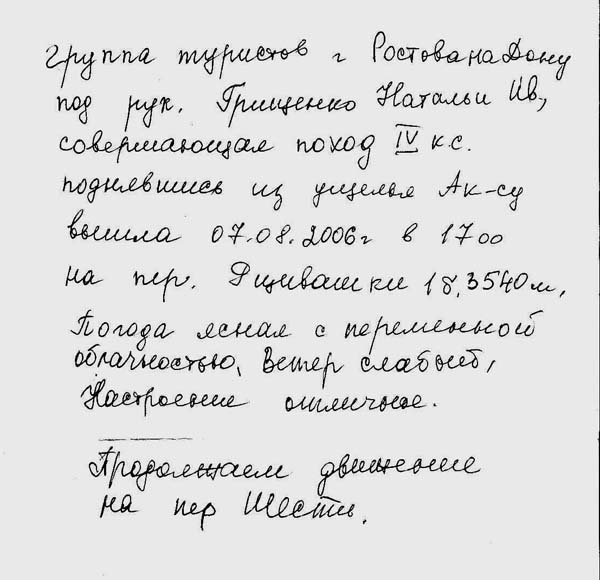 группа туристов г Ростова на Дону
под рук. Грищенко Натальи Ив,
совершающая поход IV к.с.
поднявшись из ущелья Ак-су
вышла 07.08.2006г в 1700
на пер. 1Б, 3540м,
Погода ясная с переменной
облачностью, Ветер слабый,
Настроение отличное.
Продолжаем движение
на пер Шести.